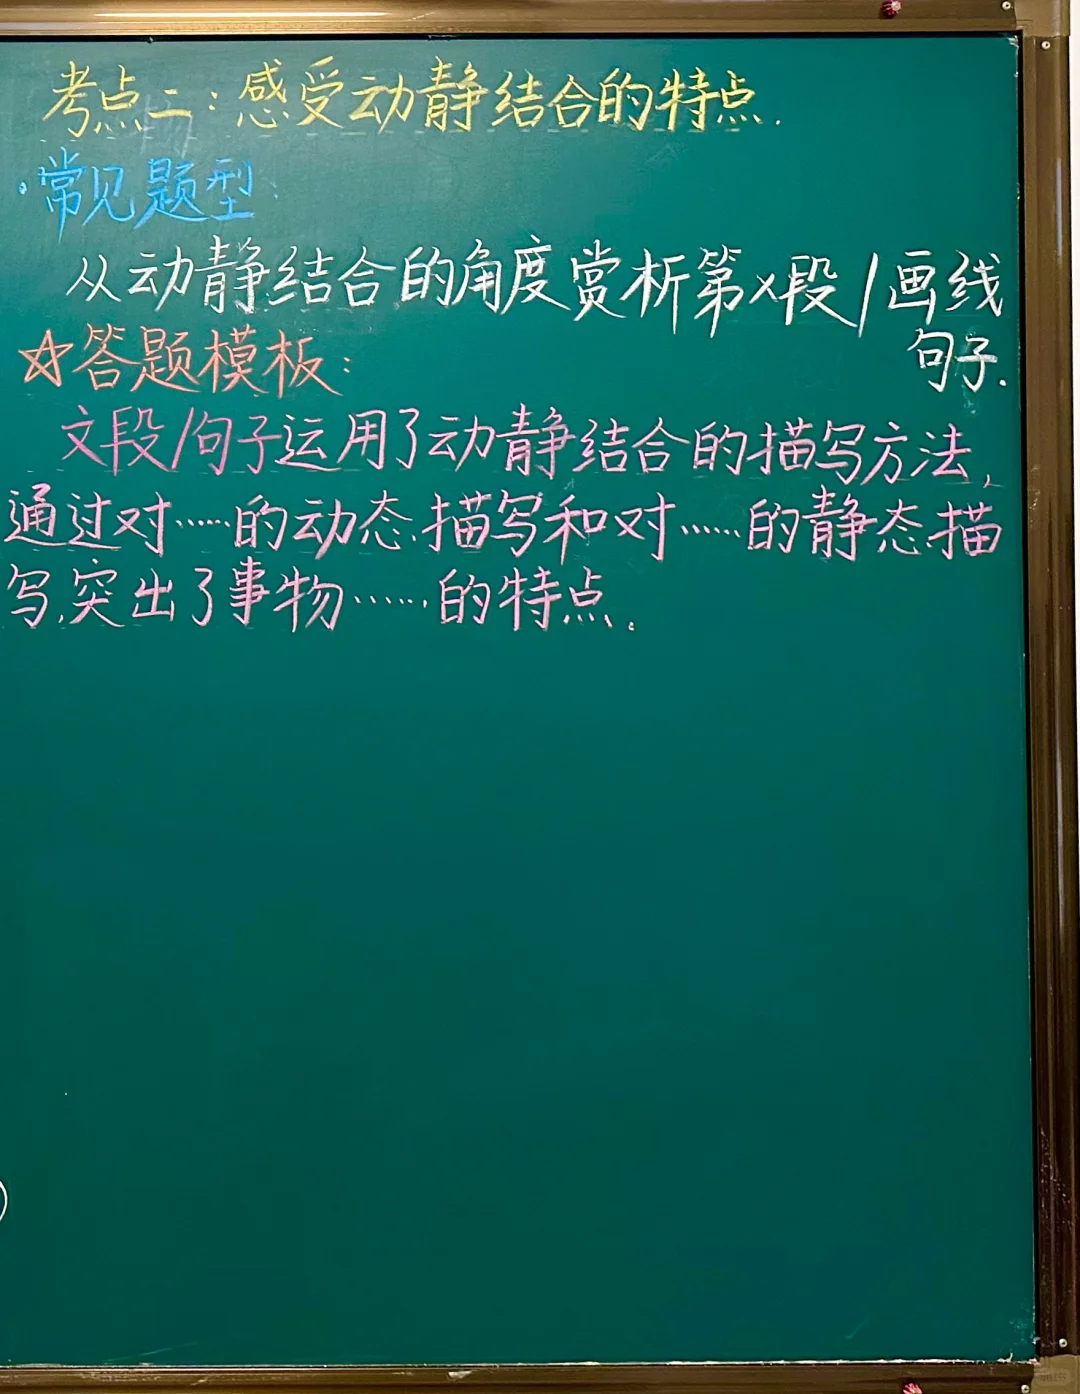 考点二:感受动静结合的特点.
·常见题型:
从动静结合的角度赏析第x段/画线
句子.
☆答题模板:
文段/句子运用了动静结合的描写方法,
通过对……的动态描写和对……的静态描
写,突出了事物……的特点.